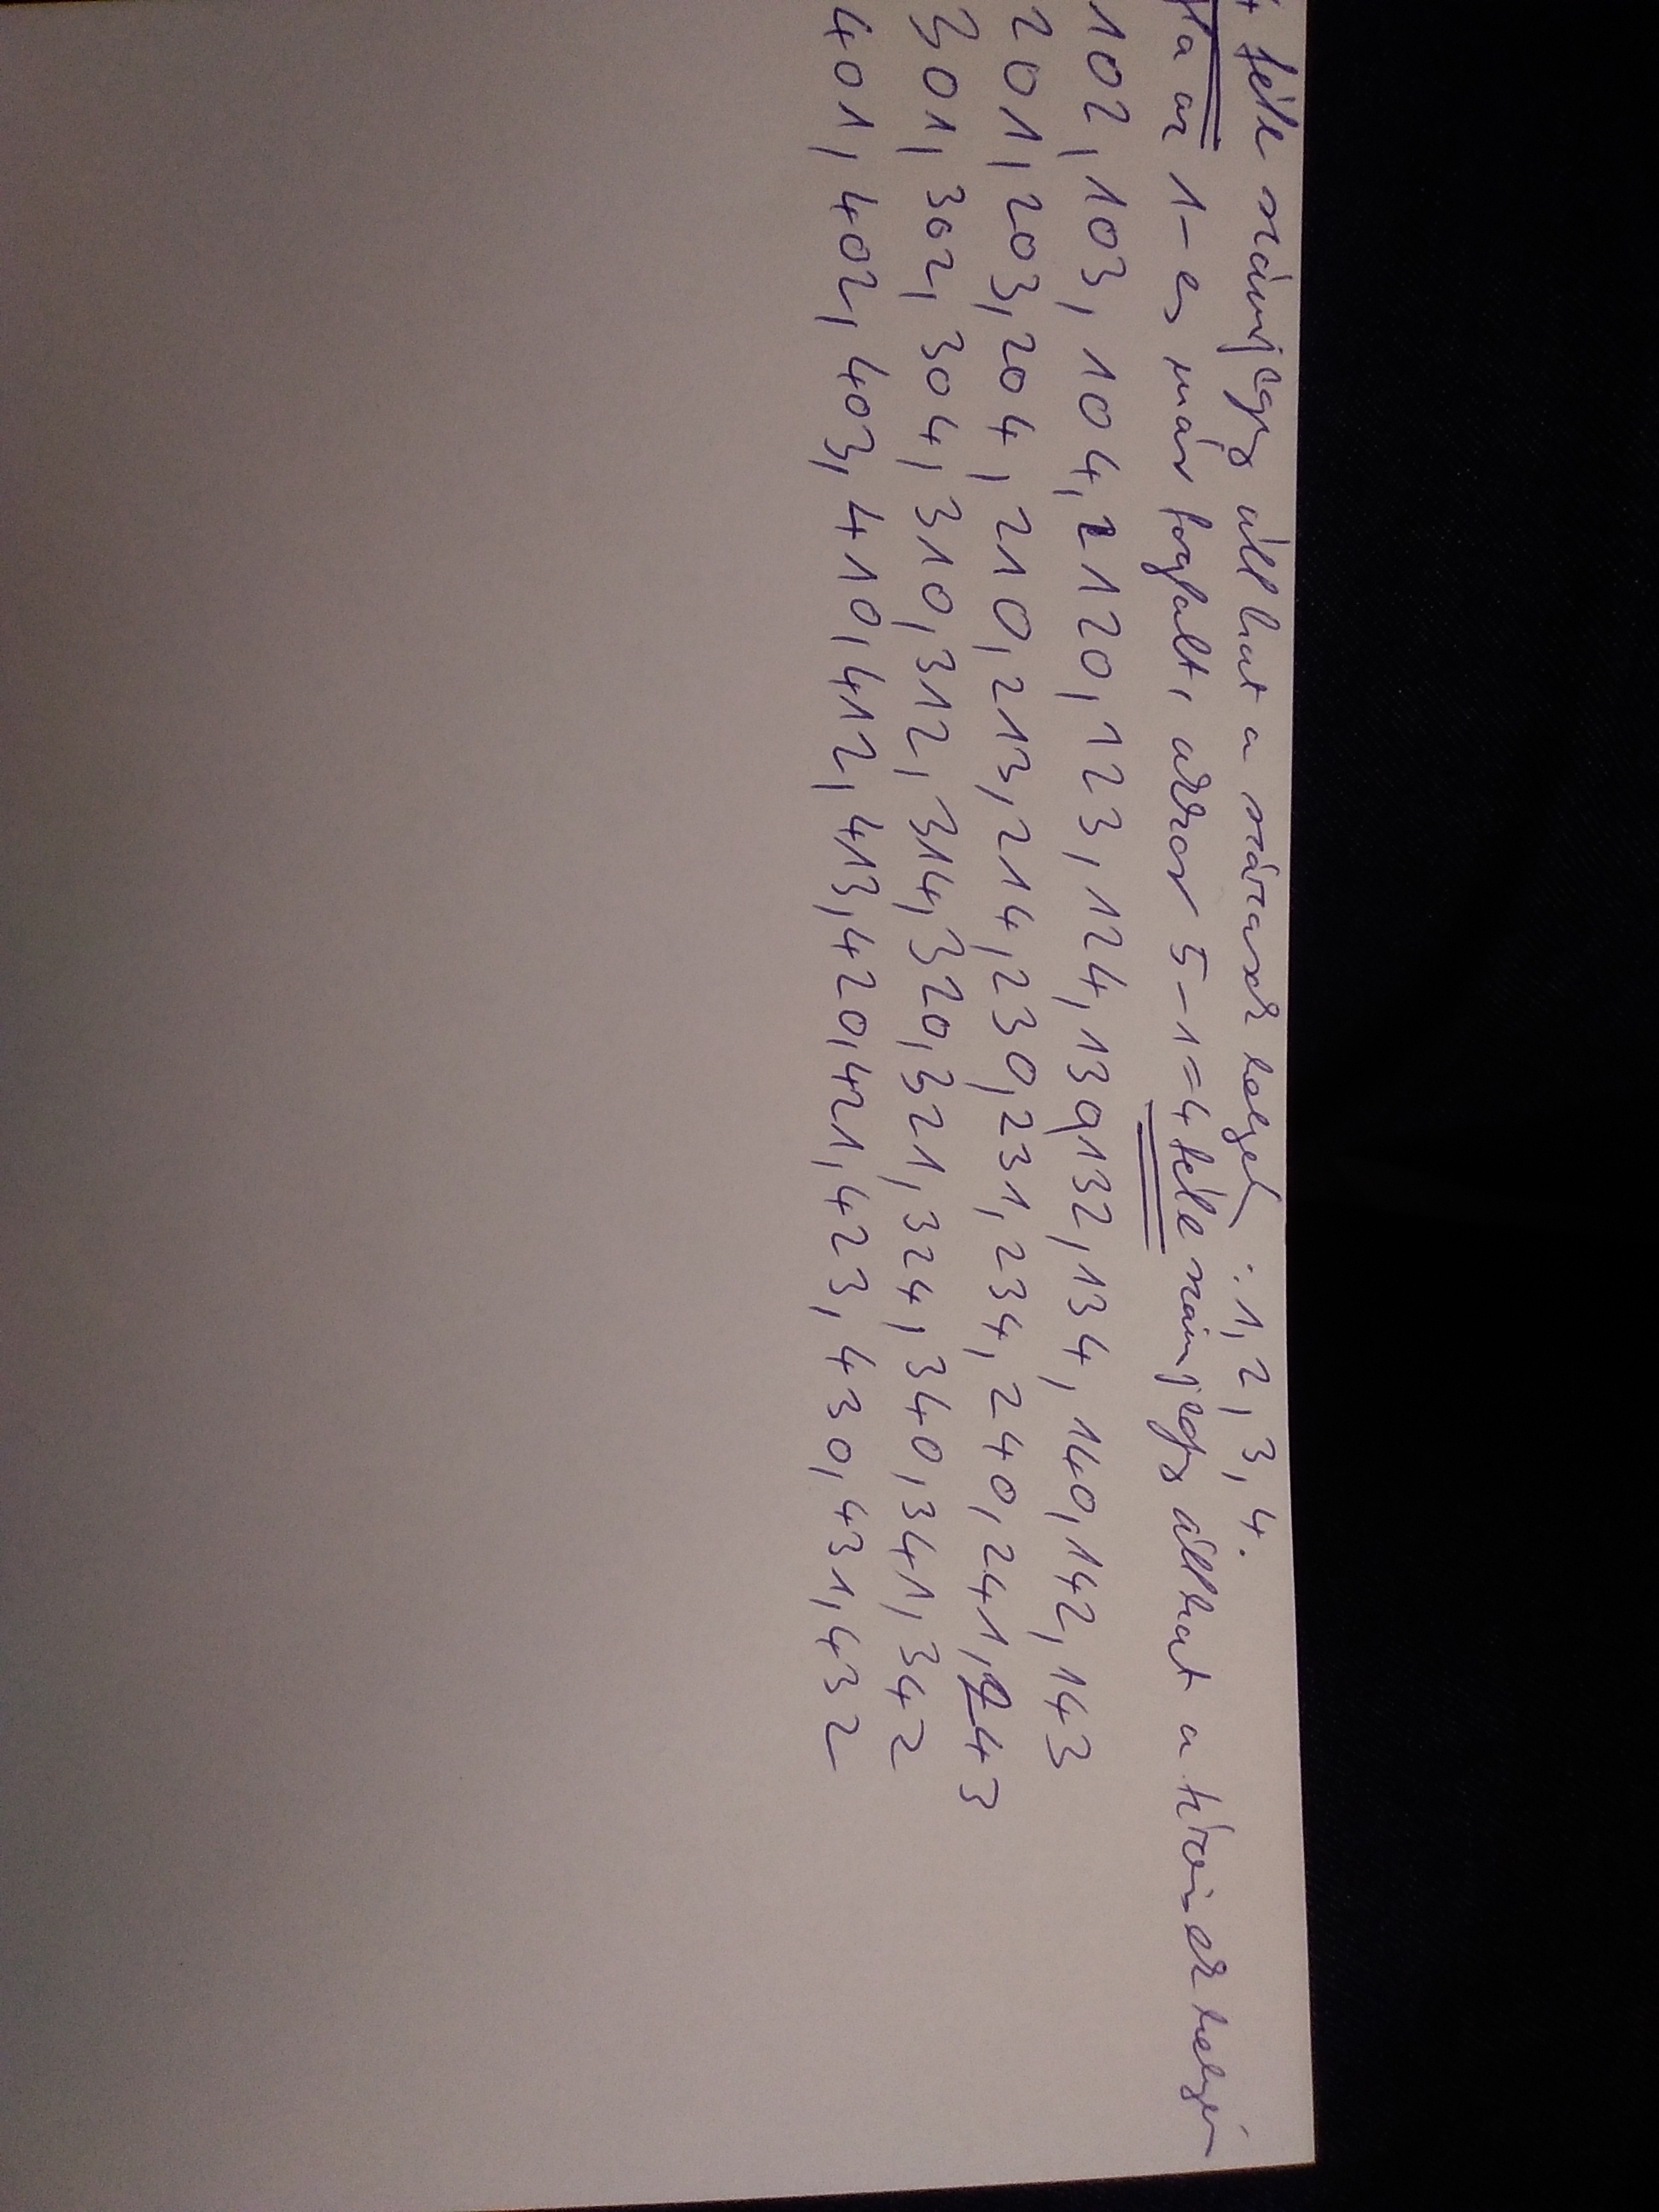 4 féle számjegy állhat a százasok helyén: 1, 2, 3, 4.
Ha az 1-es már foglalt, akkor 5-1=4 féle számjegy állhat a tízesek helyén
102, 103, 104, 2120, 123, 124, 130, 132, 134, 140, 142, 143
201, 203, 204, 210, 213, 214, 230, 231, 234, 240, 241, 243
301, 302, 304, 310, 312, 314, 320, 321, 324, 340, 341, 342
401, 402, 403, 410, 412, 413, 420, 421, 423, 430, 431, 432